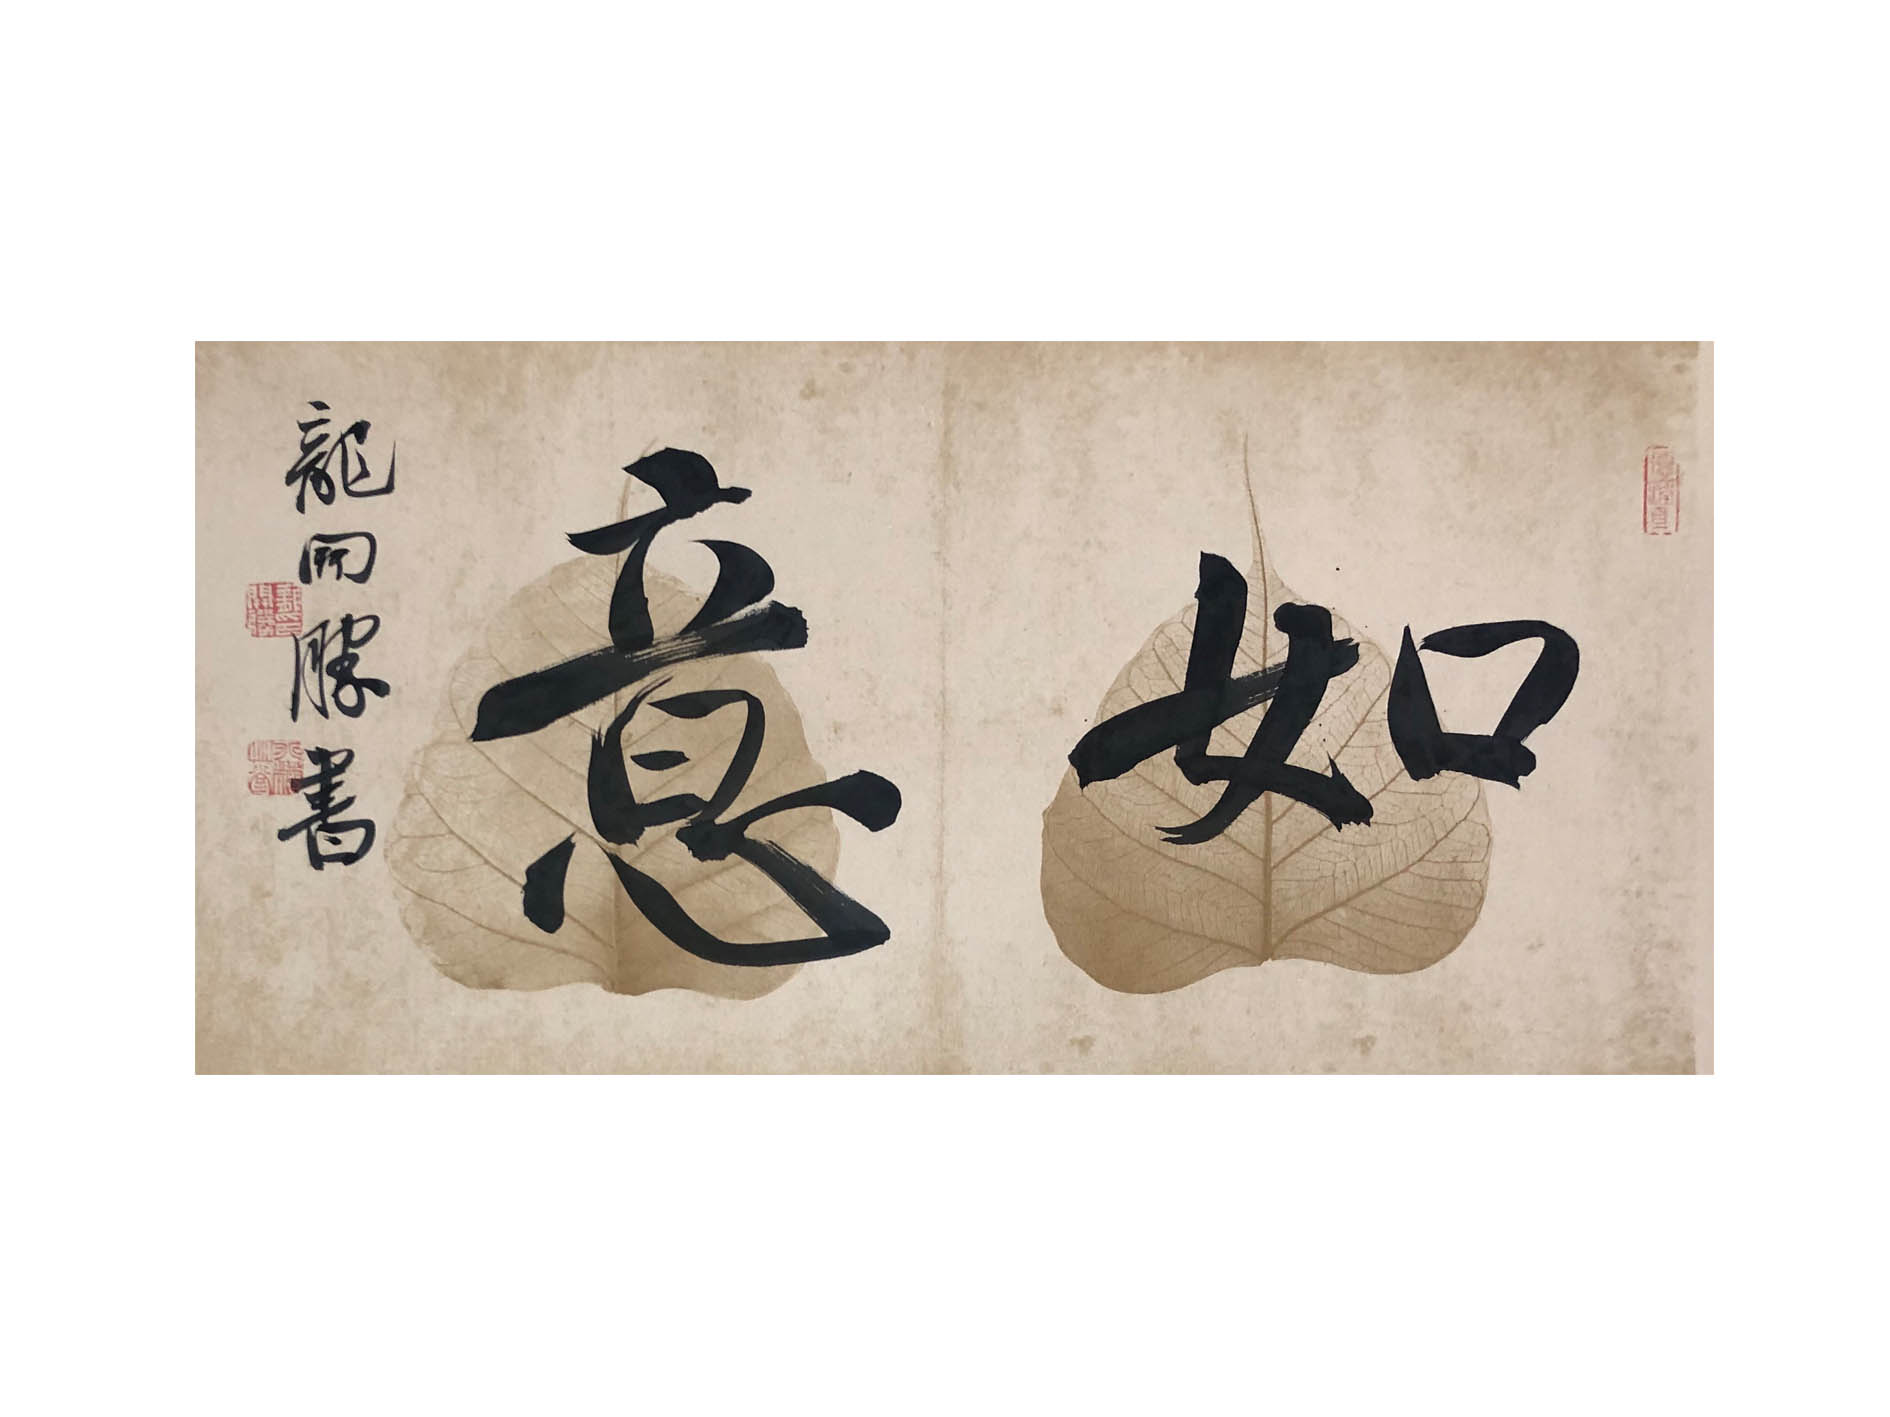 如意
龍開勝書